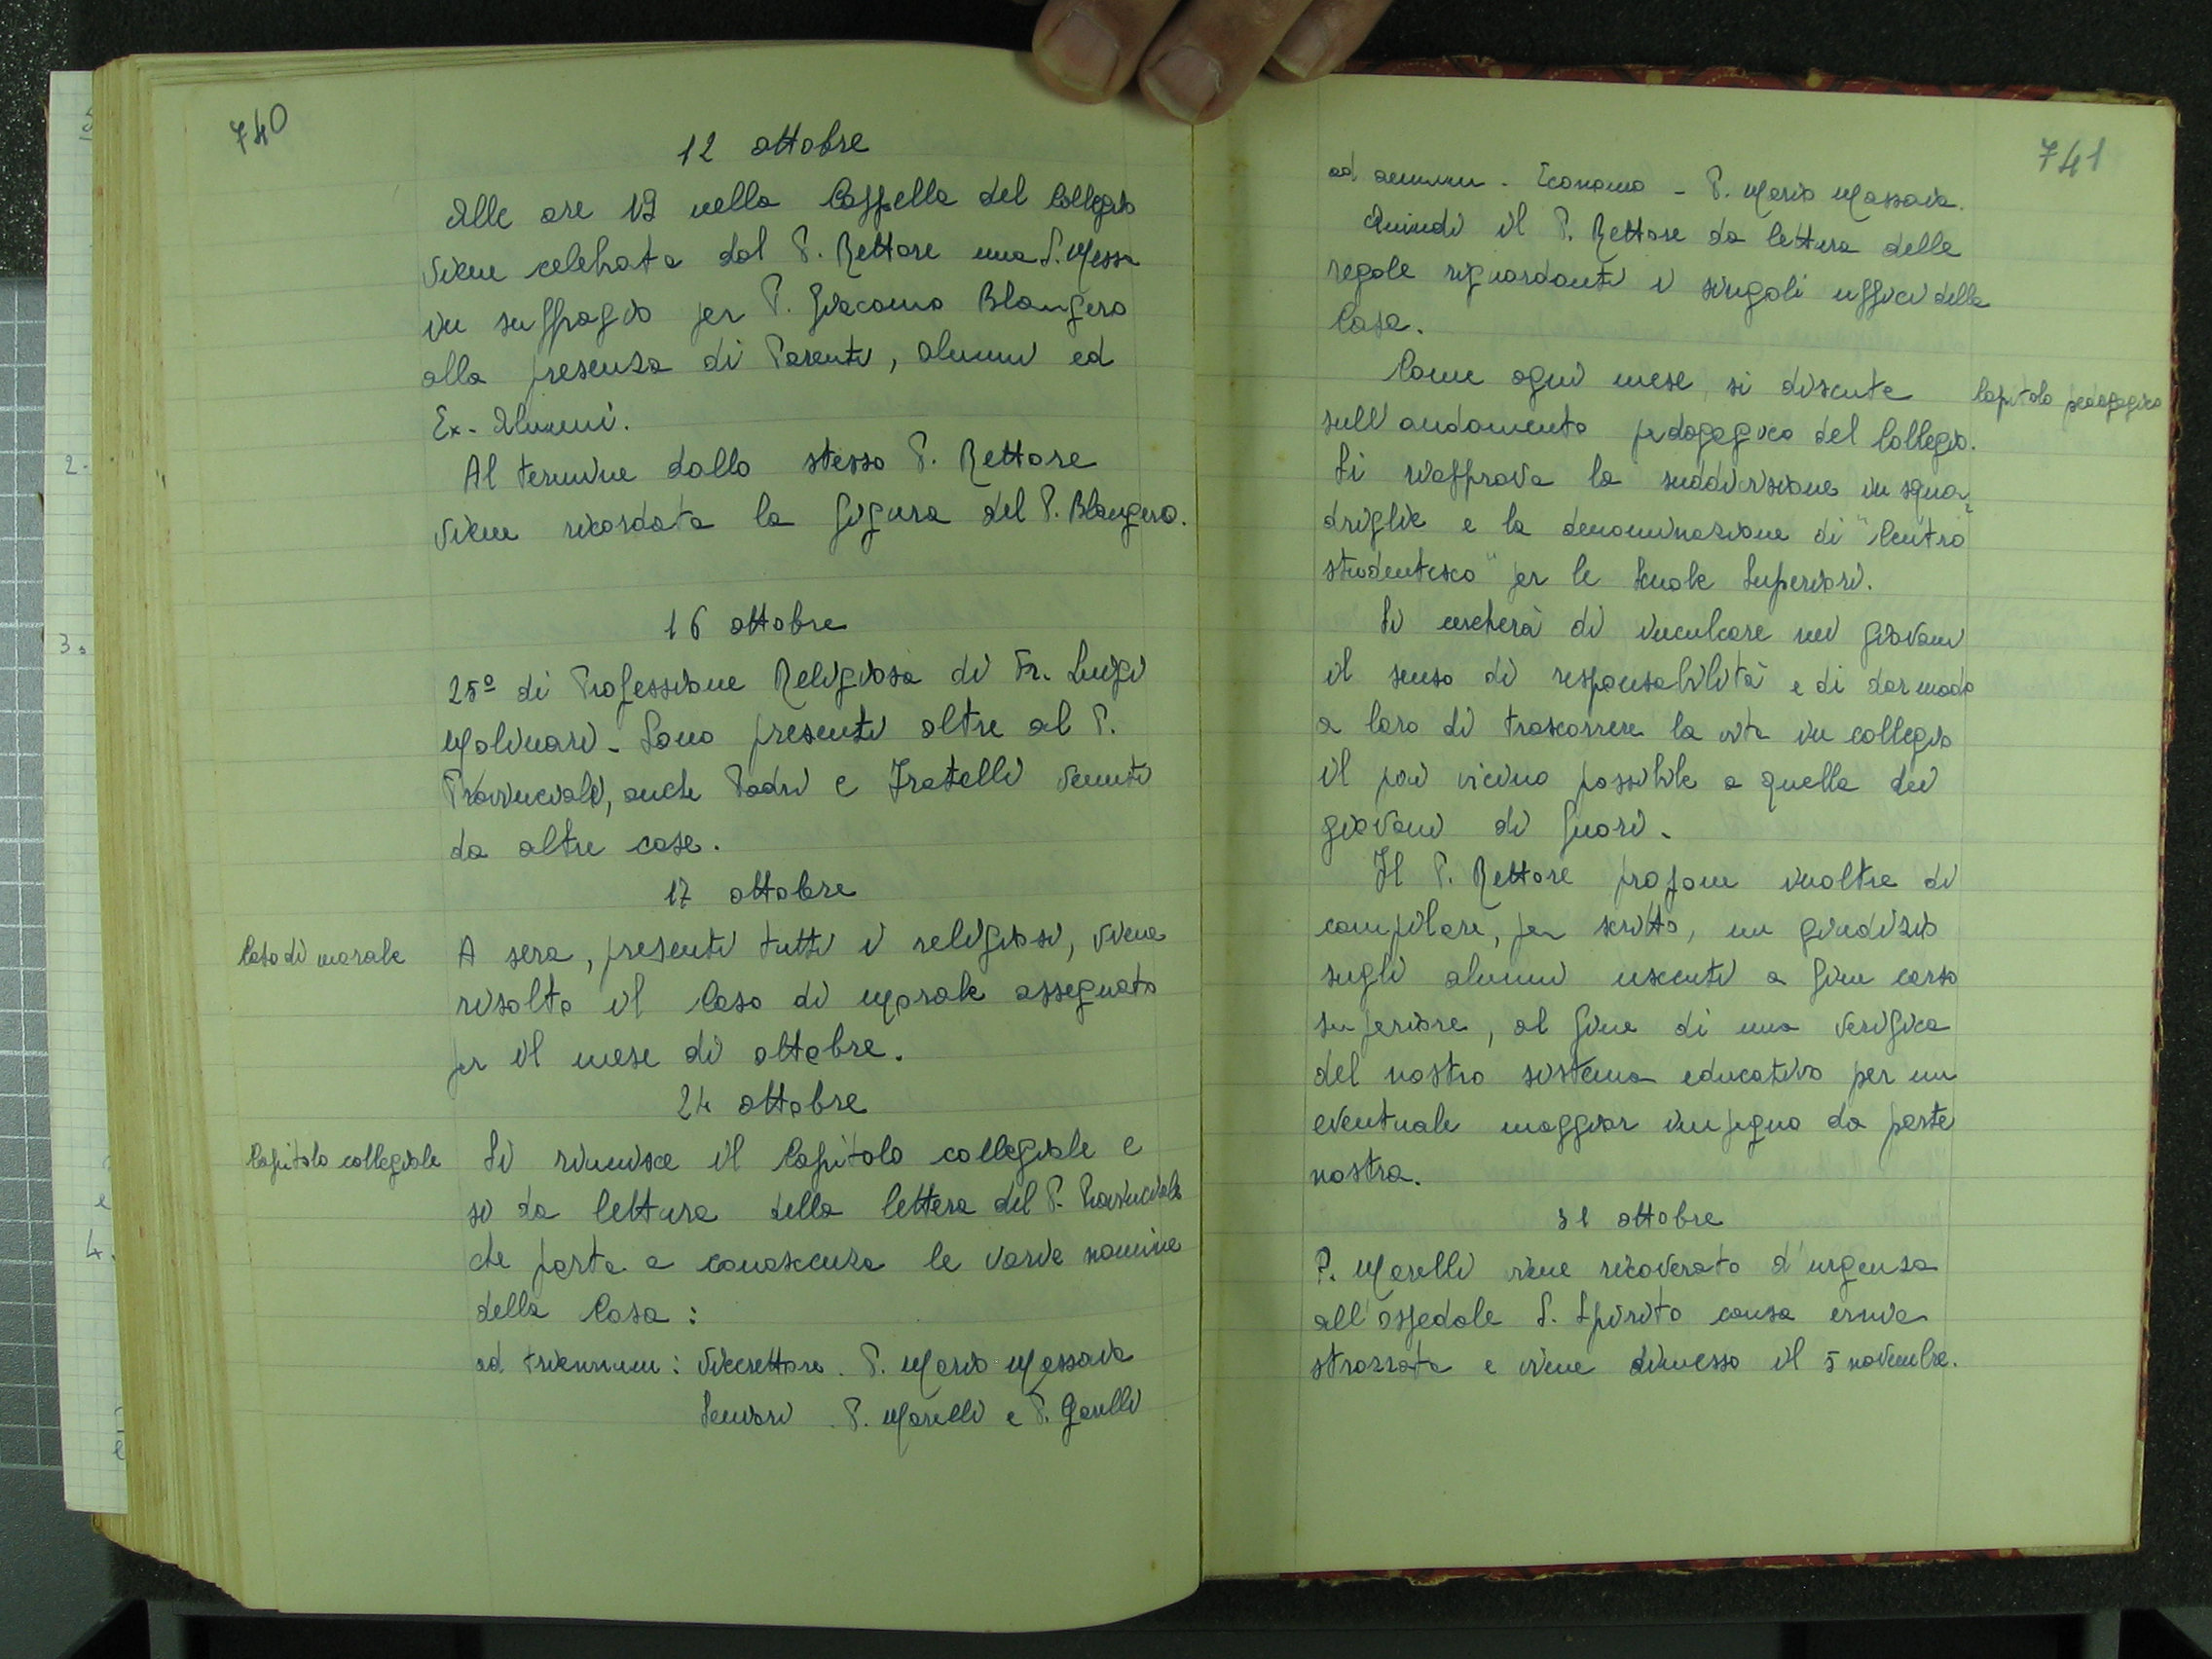 740
12 ottobre
Alle ore 19 nella Cappella del Collegio
viene celebrata dal P. Rettore una S. Messa
in suffragio per P. Giacomo Blangero
alla presenza di Parenti, alunni ed
Ex-Alunni.
Al termine dallo stesso P. Rettore
viene ricordata la figura del P. Blangero.
16 ottobre
25º di Professione Religiosa di Fr. Luigi
Molinari - Sono presenti oltre al P.
Provinciale, anche Padri e Fratelli venuti
da altre case.
17 ottobre
Caso di morale
A sera, presenti tutti i religiosi, viene
risolto il Caso di Morale assegnato
per il mese di ottobre.
24 ottobre
Capitolo collegiale
Si riunisce il Capitolo collegiale e
si da lettura della lettera del P. Provinciale
che porta a conoscenza le varie nomine
della Casa:
ad triennium: Vicerettore. P. Mario Massaia
Seniori. P. Marelli e P. Garelli
741
ad annum - Economo - P. Mario Massaia.
Quindi il P. Rettore da lettura delle
regole riguardanti i singoli uffici della
Casa.
Capitolo pedagogico
Come ogni mese, si discute
sull'andamento pedagogico del Collegio.
Si riapprova la suddivisione in squa-
driglie e la denominazione di "Centro
studentesco" per le Scuole Superiori.
Si cercherà di inculcare nei giovani
il senso di responsabilità e di dar modo
a loro di trascorrere la vita in collegio
il più vicino possibile a quella dei
giovani di fuori.
Il P. Rettore propone inoltre di
compilare, per scritto, un giudizio
sugli alunni uscenti a fine corso
superiore, al fine di una verifica
del nostro sistema educativo per un
eventuale maggior impegno da parte
nostra.
31 ottobre
P. Marelli viene ricoverato d'urgenza
all'ospedale S. Spirito causa ernia
strozzata e viene dimesso il 5 novembre.